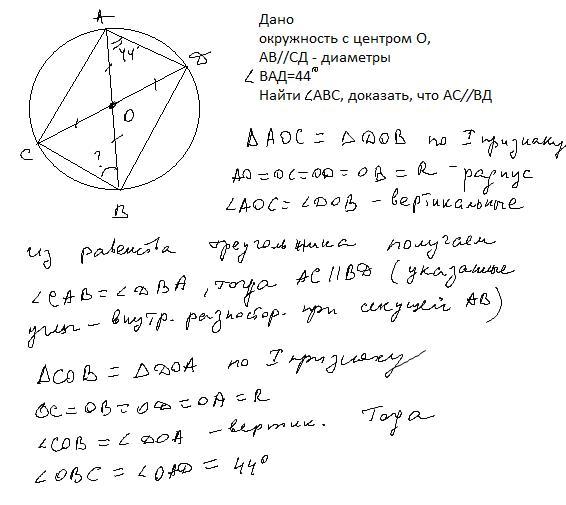 А
44°
Д
О
С
?
В
Дано
окружность с центром О,
АВ//СД - диаметры
∠ ВАД=44°
Найти ∠АВС, доказать, что АС//ВД
Δ AOC = Δ DOB по I признаку
AO = OC = OD = OB = R - радиус
∠AOC = ∠DOB - вертикальные
Из равенства треугольника получаем
∠CAB = ∠DBA, тогда AC || BD (указанные
углы - внутр. разностор. при секущей AB)
ΔCOB = ΔDOA по I признаку
OC = OB = OD = OA = R
∠COB = ∠DOA - вертик. Тогда
∠OBC = ∠OAD = 44°